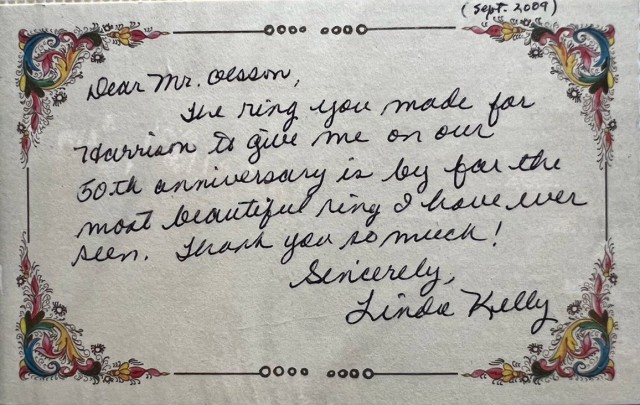 (Sept. 2009)
Dear Mr. Olsson,
The ring you made for
Harrison to give me on our
50th anniversary is by far the
most beautiful ring I have ever
seen. Thank you so much!
Sincerely,
Linda Kelly